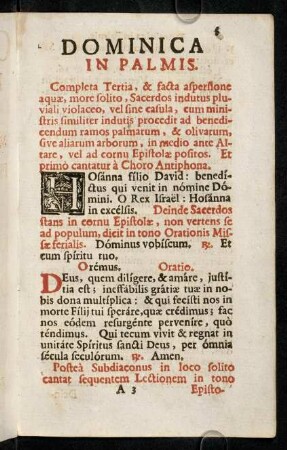 DOMINICA
IN PALMIS.
Completa Tertia, & facta aspersione
aquæ, more solito, Sacerdos indutus plu-
viali violaceo, vel sine casula, cum mini-
stris similiter indutis procedit ad bene-
dicendum ramos palmarum, & olivarum,
sive aliarum arborum, in medio ante Al-
tare, vel ad cornu Epistolæ positos. Et
primo cantatur à Choro Antiphona.
HOsánna fílio David: benedí-
ctus qui venit in nómine Dó-
mini. O Rex Israël: Hosánna
in excélsis. Deinde Sacerdos
stans in cornu Epistolæ, non vertens se
ad populum, dicit in tono Orationis Mis-
sæ ferialis. Dóminus vobíscum. ℟. Et
cum spíritu tuo.
Orémus. Oratio.
DEus, quem dilígere, & amáre, justí-
tia est; ineffábilis grátiæ tuæ in no-
bis dona multíplica: & qui fecísti nos in
morte Fílij tui speráre, quæ crédimus; fac
nos eódem resurgénte perveníre, quò
téndimus. Qui tecum vivit & regnat in
unitáte Spíritus sancti Deus, per ómnia
sécula seculórum. ℟. Amen.
Posteà Subdiaconus in loco solito
cantat sequentem Lectionem in tono
A 3 Episto-